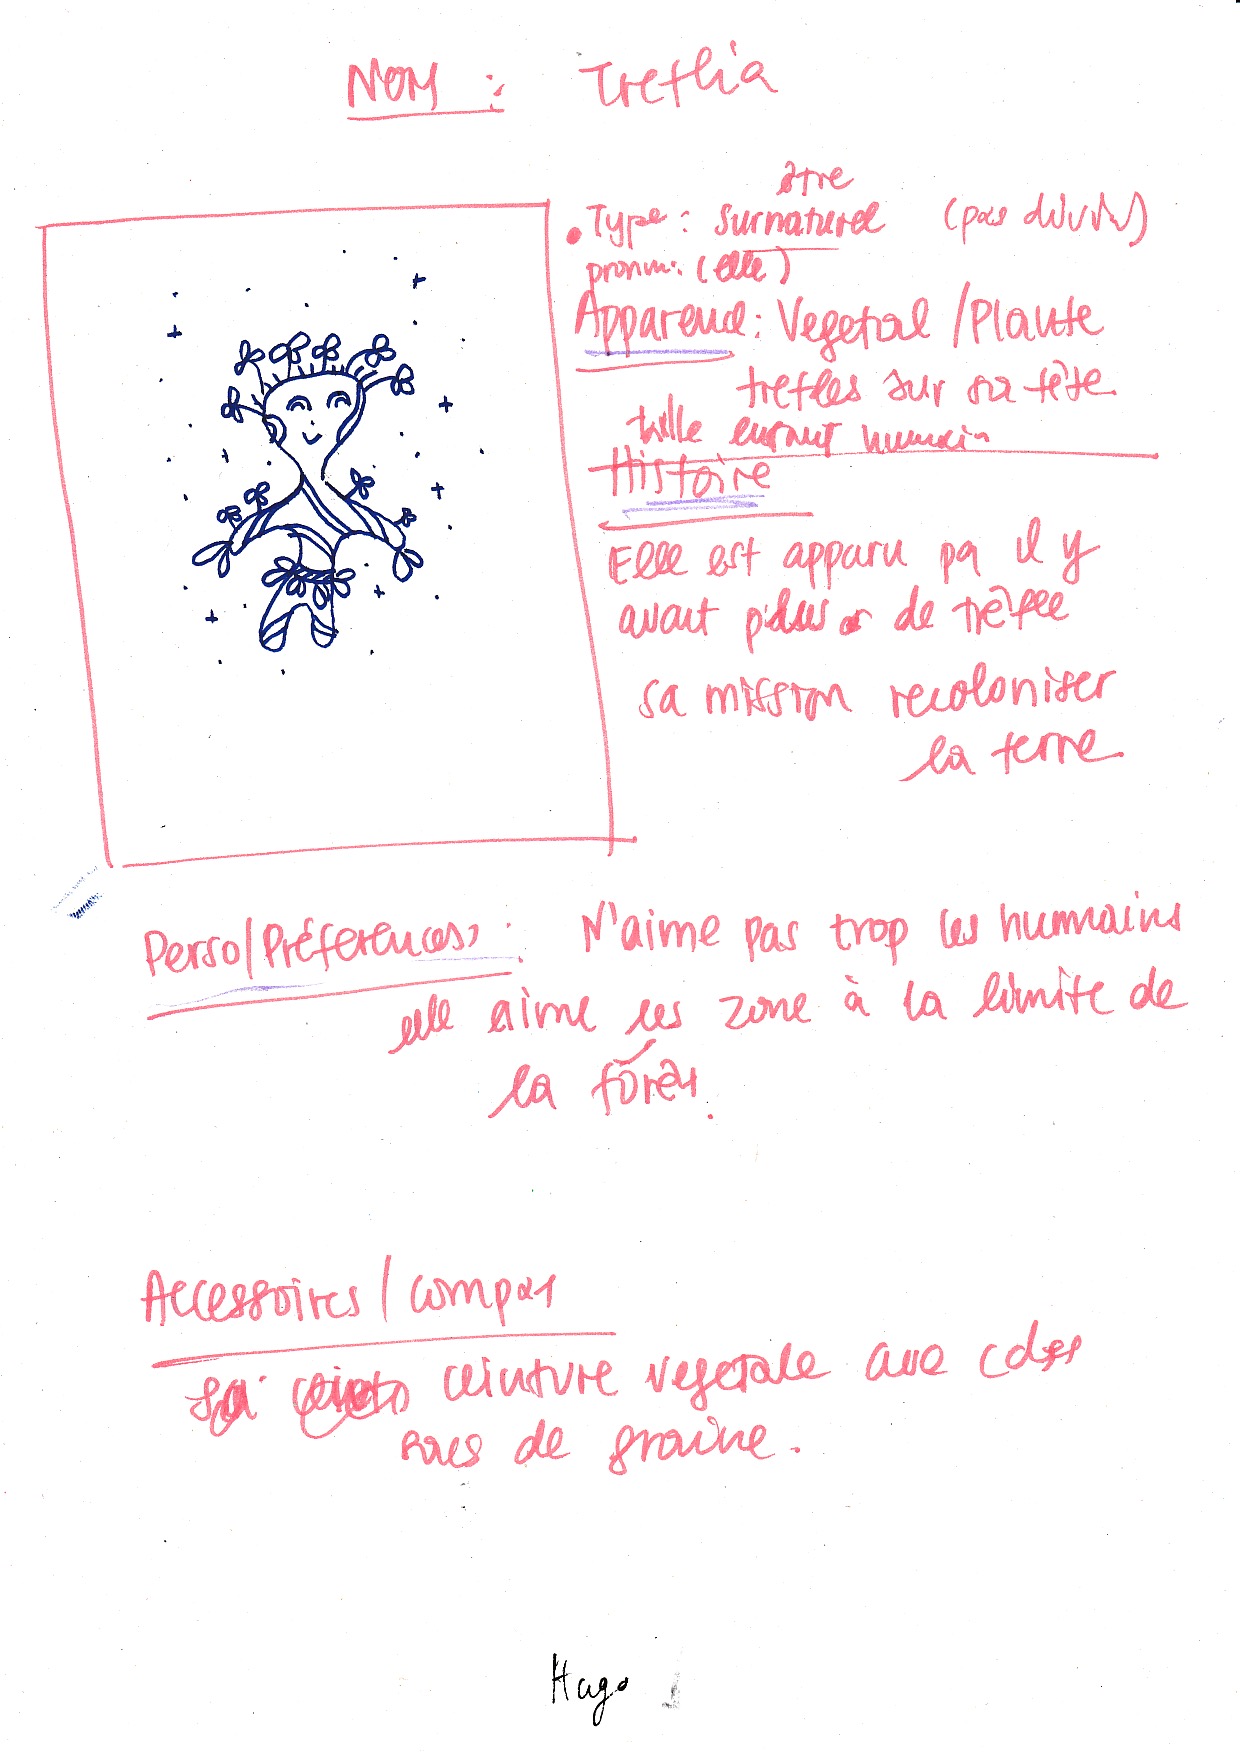 NOM : Treflia
être
Type : surnaturel (pas divin)
pronm. (elle)
Apparence : Vegetal / Plante
trefles sur sa tête
taille enfant humain
Histoire
Elle est apparu pq il y
avait plus de trêfle
sa mission recoloniser
la terre
Perso/Préferences : N'aime pas trop les hummains
elle aime les zone à la limite de
la fôrêt.
Accessoires / compas
sa ceinture vegetale avec des
sacs de graine.
Hugo